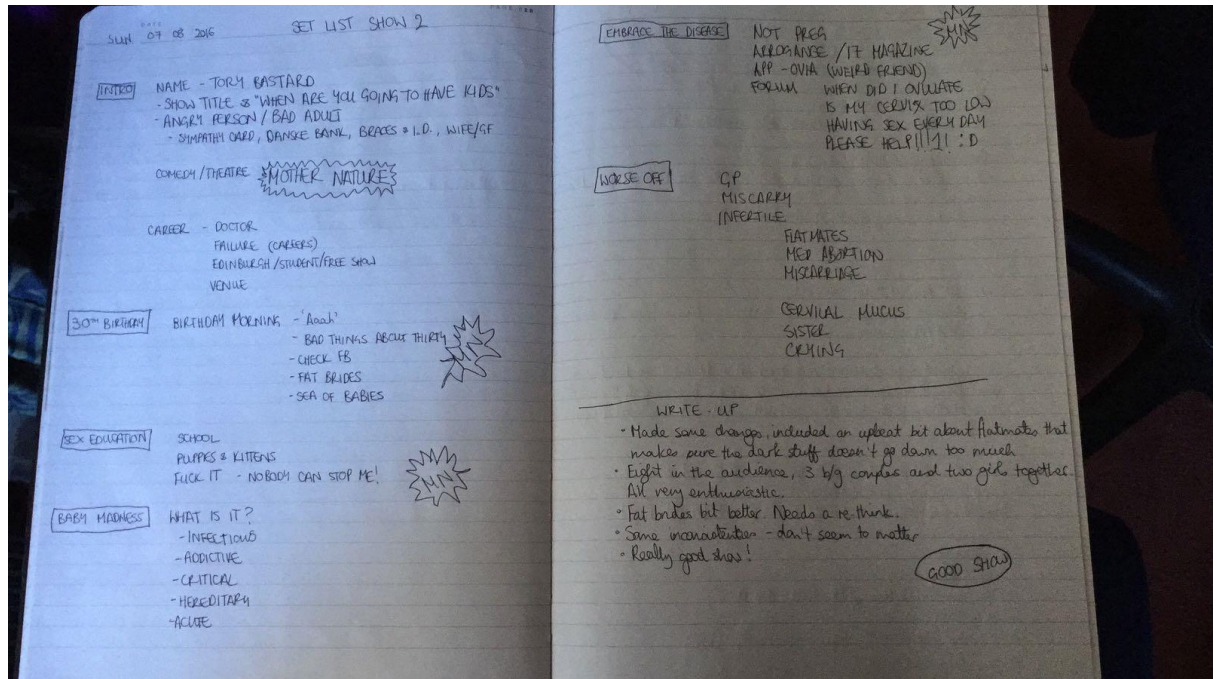 DATE
SUN 07 08 2016 SET LIST SHOW 2
INTRO NAME - TORY BASTARD
- SHOW TITLE & "WHEN ARE YOU GOING TO HAVE KIDS"
- ANGRY PERSON / BAD ADULT
- SYMPATHY CARD, DANSKE BANK, BRACES & I.D., WIFE/GF
COMEDY/THEATRE MOTHER NATURE
CAREER - DOCTOR
FAILURE (CAREERS)
EDINBURGH/STUDENT/FREE SHOW
VENUE
30TH BIRTHDAY BIRTHDAY MORNING - 'Aaah'
- BAD THINGS ABOUT THIRTY
- CHECK FB
- FAT BRIDES
- SEA OF BABIES
MN
SEX EDUCATION SCHOOL
PUPPIES & KITTENS
FUCK IT - NOBODY CAN STOP ME!
MN
BABY MADNESS WHAT IS IT?
- INFECTIOUS
- ADDICTIVE
- CRITICAL
- HEREDITARY
- ACUTE
EMBRACE THE DISEASE NOT PREG
MN
ARROGANCE / 17 MAGAZINE
APP - OVIA (WEIRD FRIEND)
FORUM WHEN DID I OVULATE
IS MY CERVIX TOO LOW
HAVING SEX EVERY DAY
PLEASE HELP!!!1! :D
WORSE OFF GP
MISCARRY
INFERTILE
FLATMATES
MED ABORTION
MISCARRIAGE
CERVICAL MUCUS
SISTER
CRYING
WRITE-UP
• Made some changes, included an upbeat bit about flatmates that
makes sure the dark stuff doesn't go down too much
• Eight in the audience, 3 b/g couples and two girls together.
All very enthusiastic.
• Fat brides bit better. Needs a re-think.
• Some inconsistencies - don't seem to matter
• Really good show!
GOOD SHOW